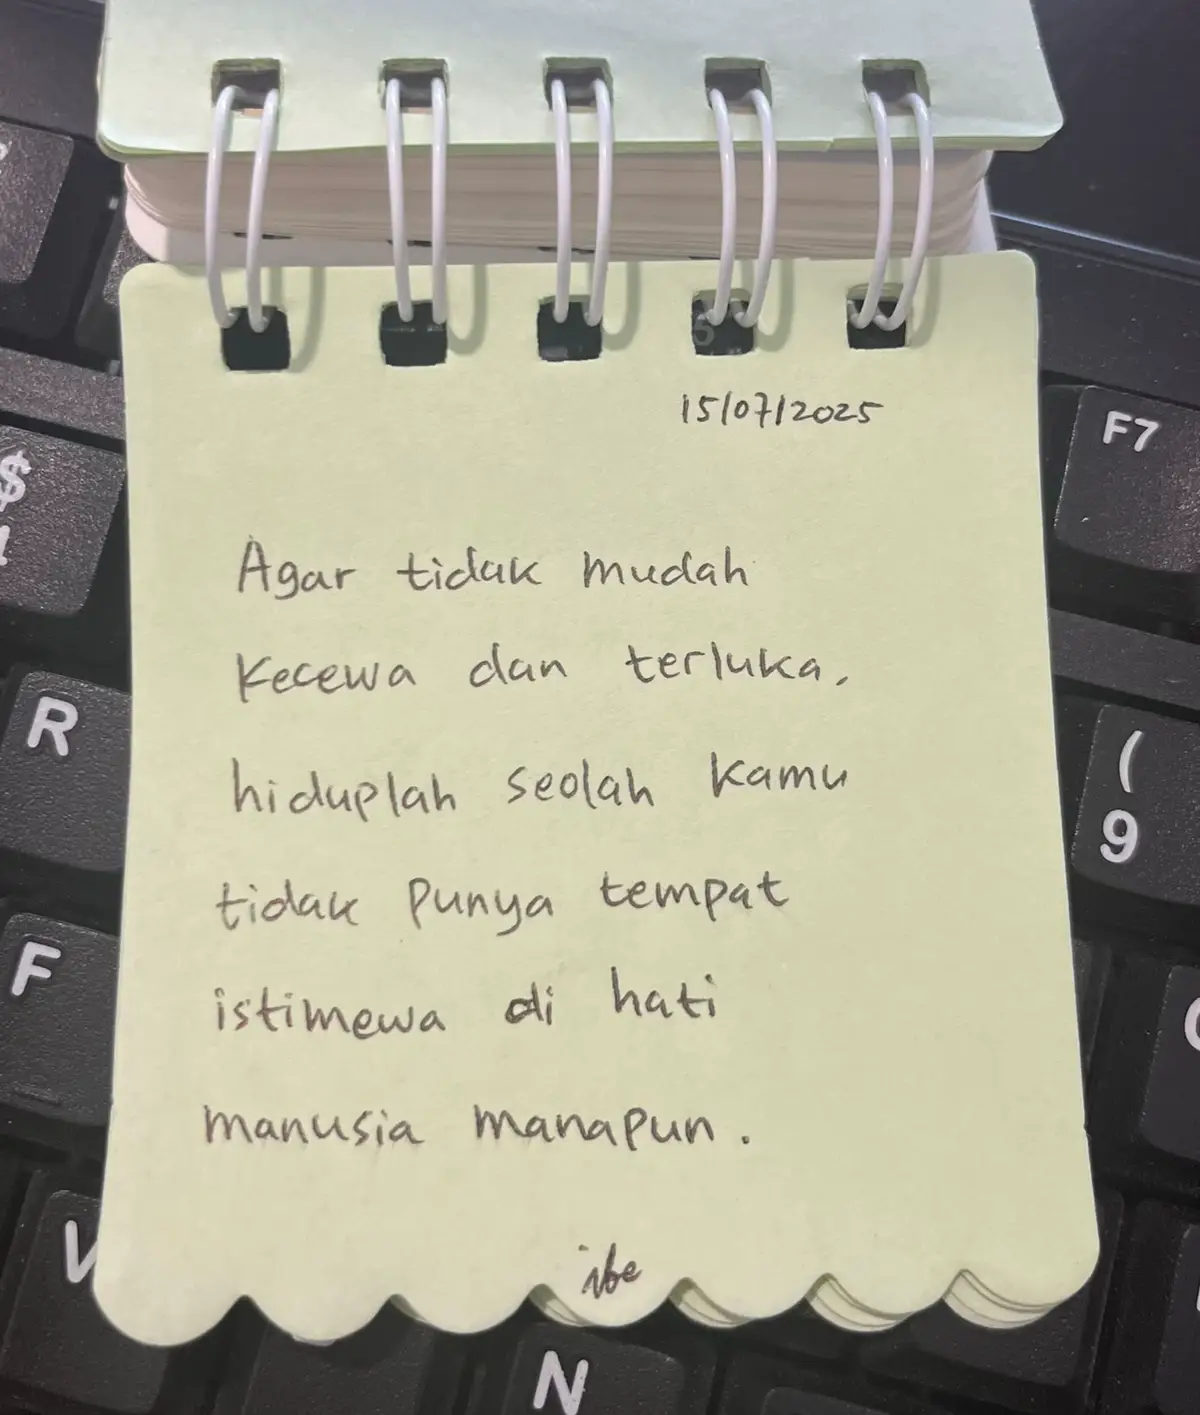 15/07/2025
Agar tidak mudah
kecewa dan terluka,
hiduplah seolah kamu
tidak punya tempat
istimewa di hati
manusia manapun.
ibe
$
4
F7
R
(
9
F
V
N